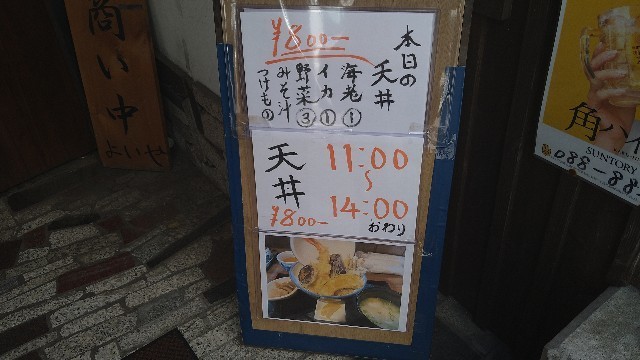 商い中
よいや
本日の
天丼
¥800-
海老①
イカ①
野菜③
みそ汁
つけもの
天丼
¥800-
11:00
~
14:00
おわり
角ハイ
SUNTORY
088-88